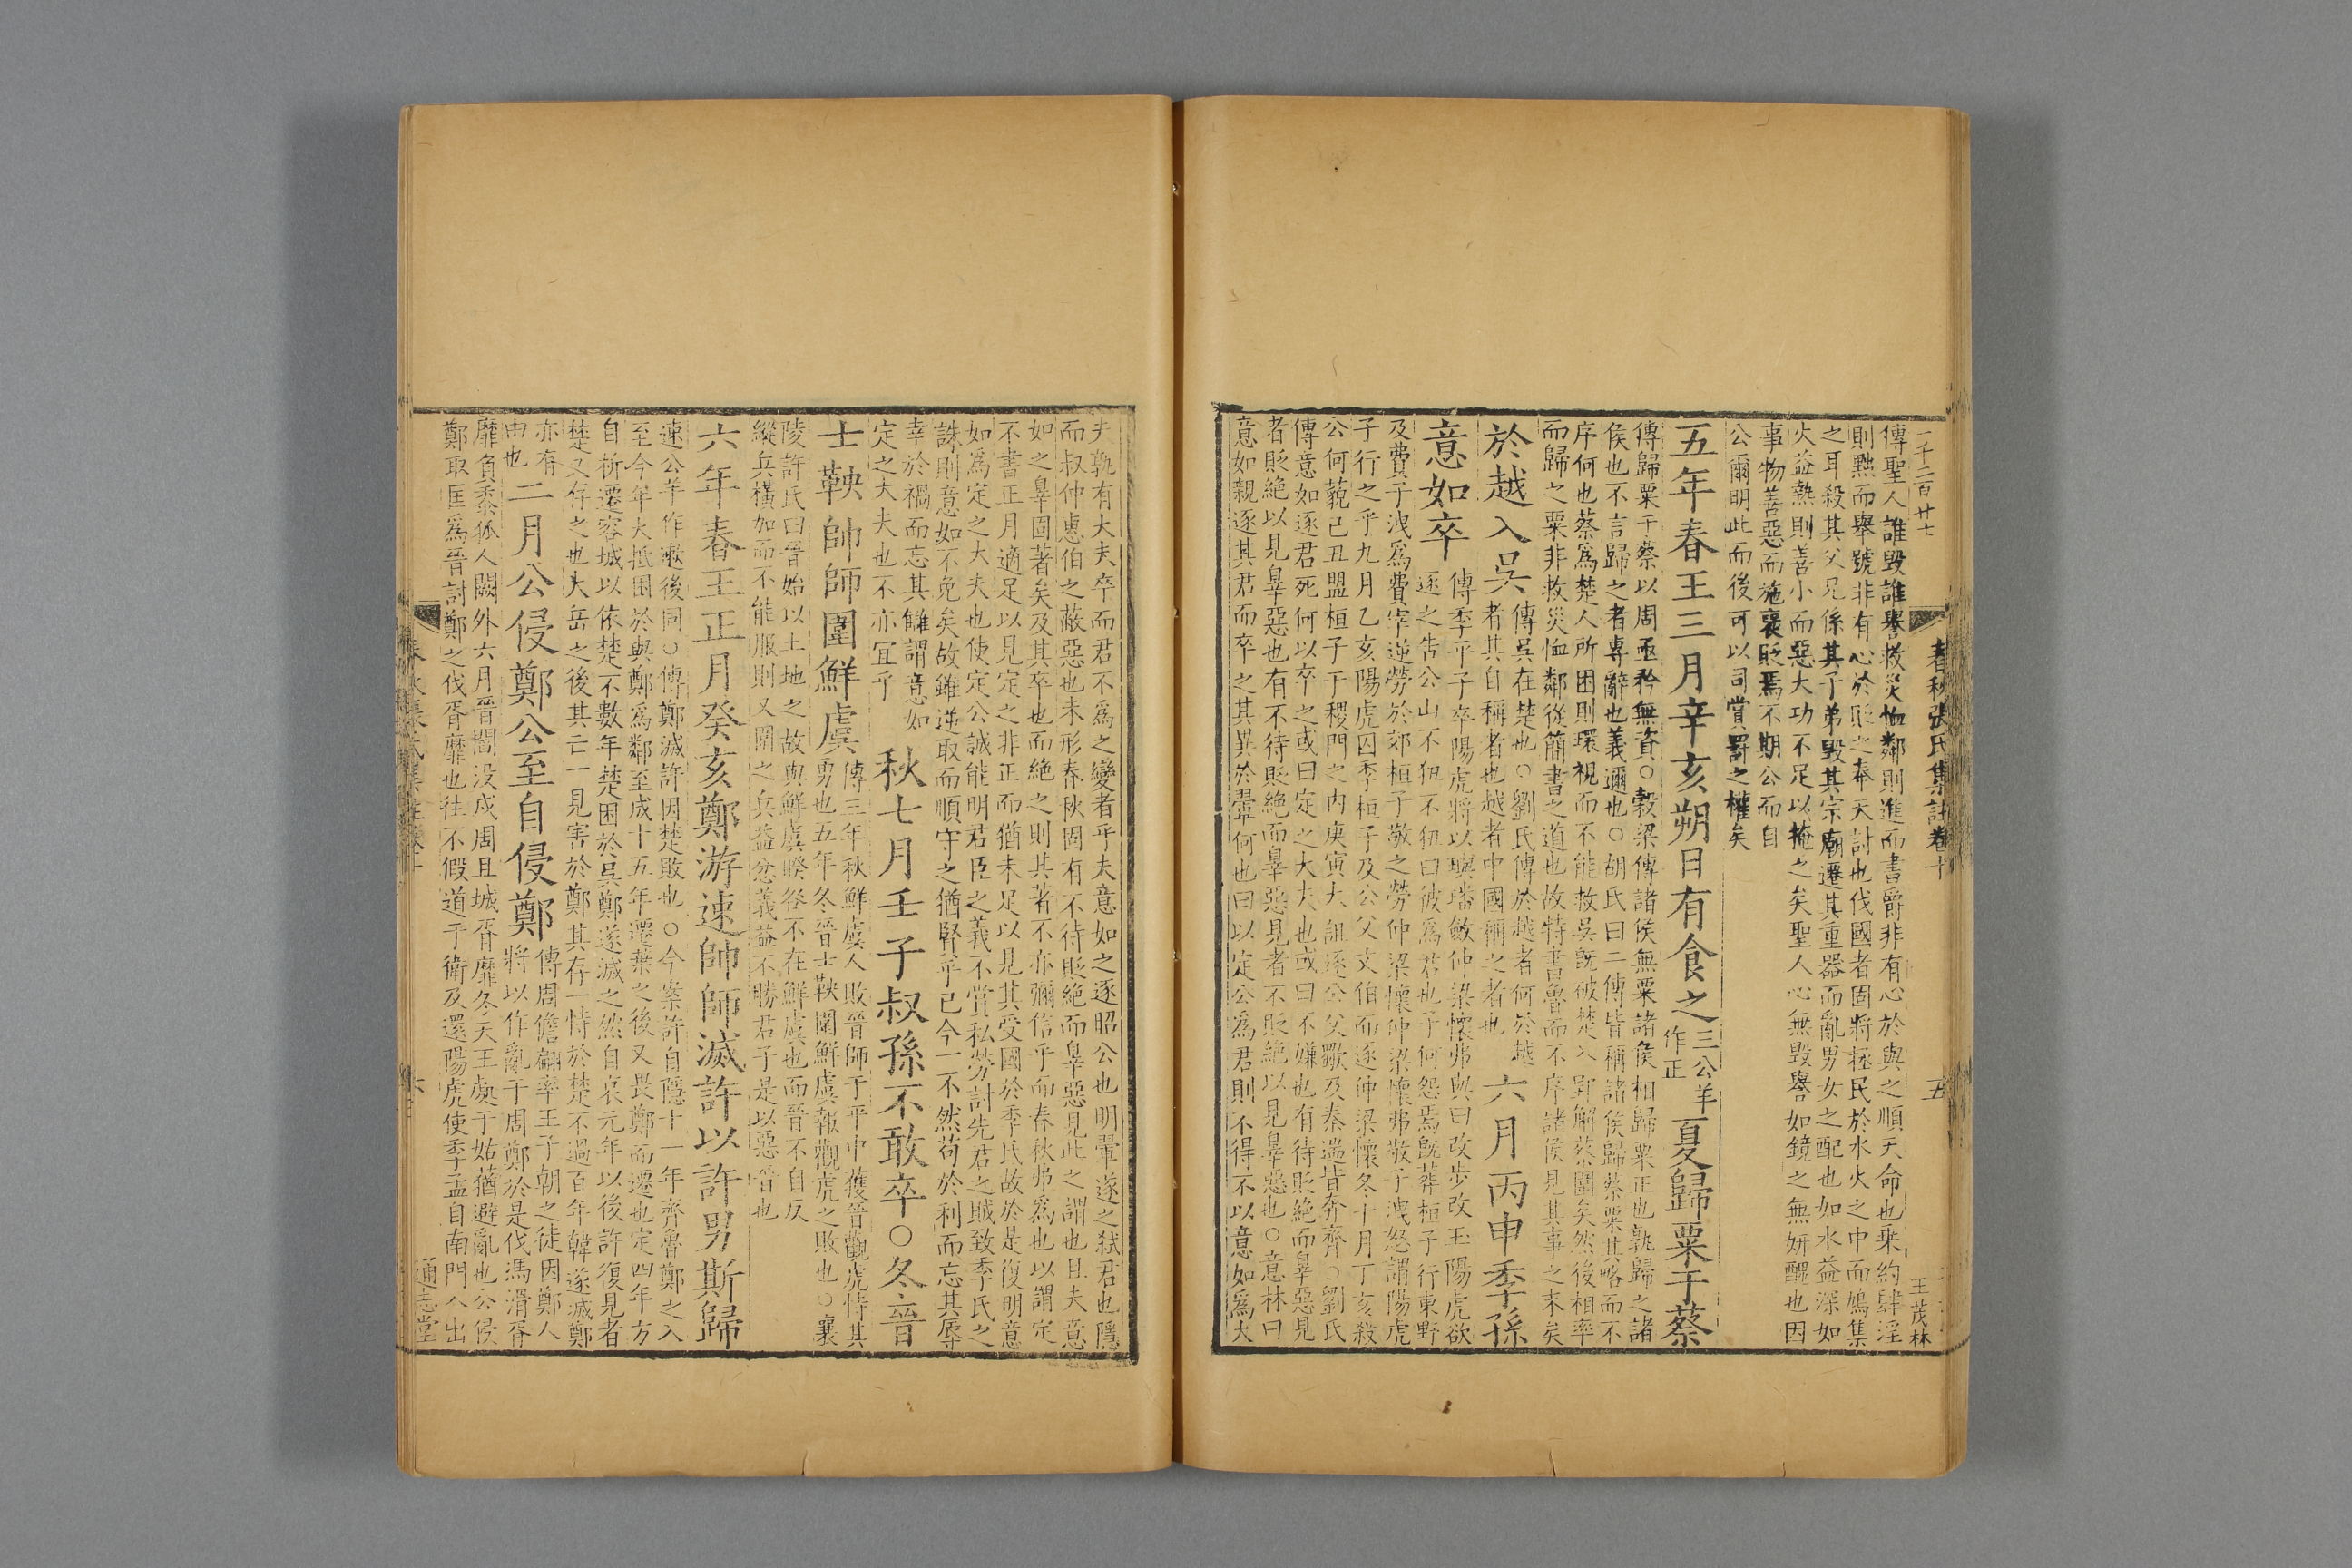 一千二百廿七
春秋張氏集註卷十
五
王茂林
傳聖人誰毀誰譽救災恤鄰則進而書爵非有心於與之順天命也乗約肆淫
則黜而舉號非有心於貶之奉天討也伐國者固將拯民於水火之中而鳩集
之耳殺其父兄係其子弟毀其宗廟遷其重器而亂男女之配也如水益深如
火益熱則善小而惡大功不足以掩之矣聖人心無毀譽如鏡之無妍醜也因
事物善惡而施襃貶焉不期公而自
公爾明此而後可以司賞罰之權矣
五年春王三月辛亥朔日有食之三公羊作正夏歸粟于蔡
傳歸粟于蔡以周亟矜無資○穀梁傳諸侯無粟諸侯相歸粟正也孰歸之諸
侯也不言歸之者專辭也義邇也○胡氏曰二傳皆稱諸侯歸蔡粟其略而不
序何也蔡為楚人所困則環視而不能救吳既破楚入郢解蔡圍矣然後相率
而歸之粟非救災恤鄰從簡書之道也故特書魯而不序諸侯見其事之末矣
於越入吳傳吳在楚也○劉氏傳於越者何於越
者其自稱者也越者中國稱之者也六月丙申季孫
意如卒傳季平子卒陽虎將以璵璠斂仲梁懷弗與曰改步改玉陽虎欲
逐之告公山不狃不狃曰彼為君也子何怨焉既葬桓子行東野
及費子洩為費宰逆勞於郊桓子敬之勞仲梁懷仲梁懷弗敬子洩怒謂陽虎
子行之乎九月乙亥陽虎囚季桓子及公父文伯而逐仲梁懷冬十月丁亥殺
公何藐己丑盟桓子于稷門之内庚寅大詛逐公父歜及秦遄皆奔齊○劉氏
傳意如逐君死何以卒之或曰定之大夫也或曰不嫌也有待貶絶而辠惡見
者貶絶以見辠惡也有不待貶絶而辠惡見者不貶絶以見辠惡也○意林曰
意如親逐其君而卒之其異於翬何也曰以定公為君則不得不以意如為大
夫孰有大夫卒而君不為之變者乎夫意如之逐昭公也明翬遂之弒君也隱
而叔仲惠伯之蔽惡也未形春秋固有不待貶絶而辠惡見此之謂也且夫意
如之辠固著矣及其卒也而絶之則其著不亦彌信乎而春秋弗為也以謂定
不書正月適足以見定之非正而猶未足以見其受國於季氏故於是復明意
如為定之大夫也使定公誠能明君臣之義不賞私勞討先君之賊致季氏之
誅則意如不免矣故雖逆取而順守之猶賢乎已今一不然苟於利而忘其辱
幸於禍而忘其讎謂意如
定之大夫也不亦宜乎秋七月壬子叔孫不敢卒○冬晉
士鞅帥師圍鮮虞傳三年秋鮮虞人敗晉師于平中獲晉觀虎恃其
勇也五年冬晉士鞅圍鮮虞報觀虎之敗也○襄
陵許氏曰晉始以土地之故與鮮虞睽咎不在鮮虞也而晉不自反
縱兵橫加而不能服則又圍之兵益忿義益不勝君子是以惡晉也
六年春王正月癸亥鄭游速帥師滅許以許男斯歸
速公羊作遬後同○傳鄭滅許因楚敗也○今案許自隱十一年齊魯鄭之入
至今年大抵困於與鄭為鄰至成十五年遷葉之後又畏鄭而遷也定四年方
自析遷容城以依楚不數年楚困於吳鄭遂滅之然自哀元年以後許復見者
楚又存之也大岳之後其亡一見害於鄭其存一恃於楚不過百年韓遂滅鄭
亦有
由也二月公侵鄭公至自侵鄭傳周儋翩率王子朝之徒因鄭人
將以作亂于周鄭於是伐馮滑胥
靡負黍狐人闕外六月晉閻没戍周且城胥靡冬天王處于姑蕕避亂也公侵
鄭取匡為晉討鄭之伐胥靡也往不假道于衛及還陽虎使季孟自南門入出
通志堂